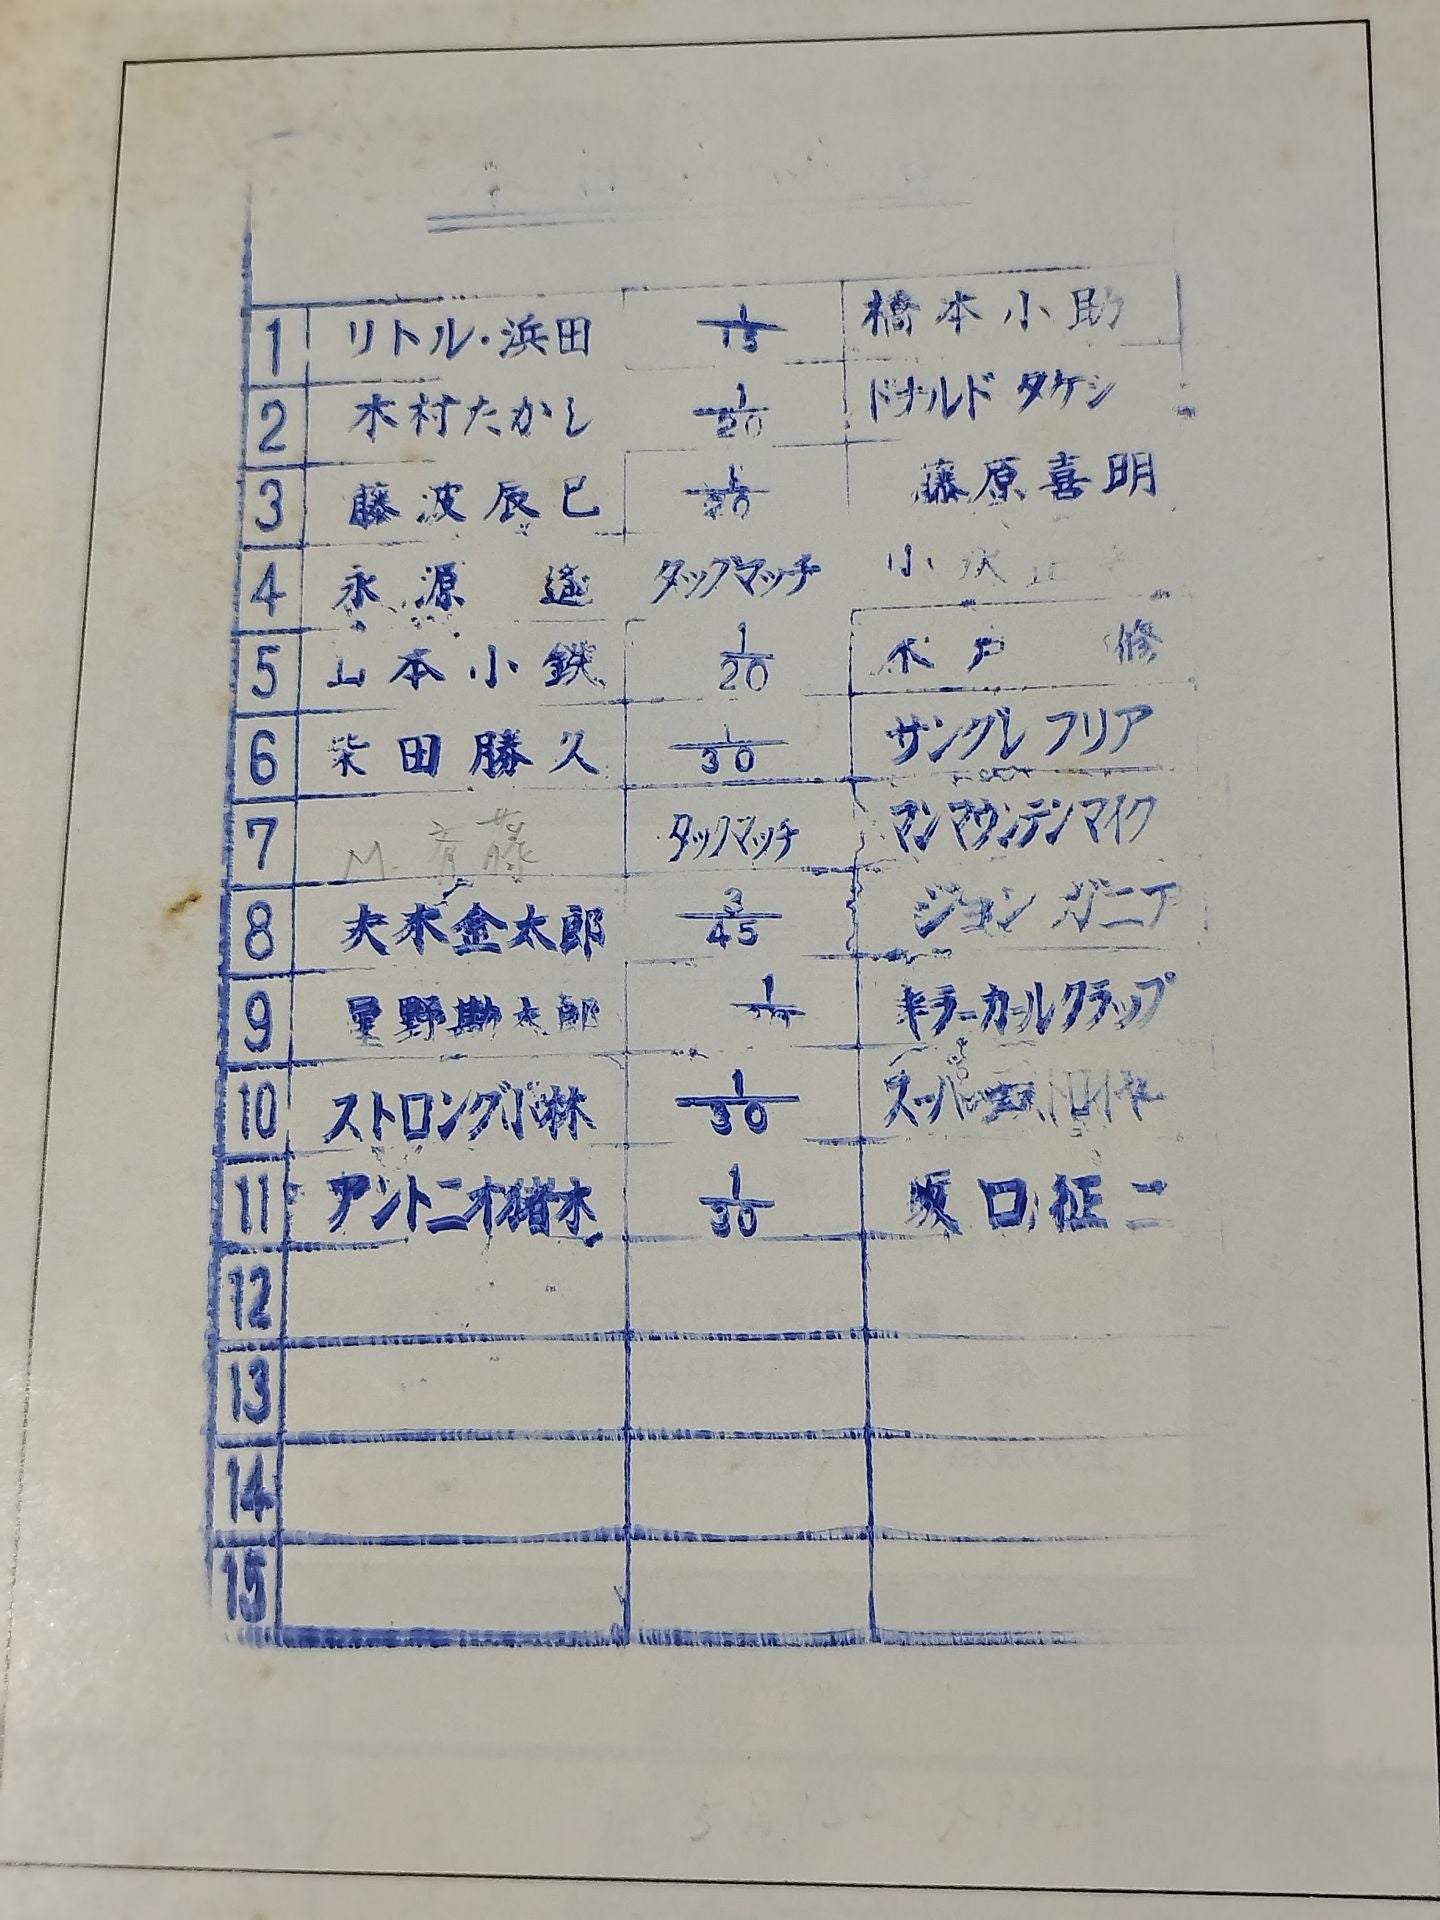 1 リトル・浜田 1/15 橋本小助
2 木村たかし 1/20 ドナルド タケシ
3 藤波辰巳 1/20 藤原喜明
4 永源 遙 タッグマッチ 小沢正
5 山本小鉄 1/20 木戸 修
6 柴田勝久 1/30 サングレ フリア
7 M.斉藤 タッグマッチ マンマウンテンマイク
8 大木金太郎 3/45 ジョン ガニア
9 星野勘太郎 1 キラーカールクラップ
10 ストロング小林 1/30 スーパー
11 アントニオ猪木 1/30 坂口征二
12
13
14
15